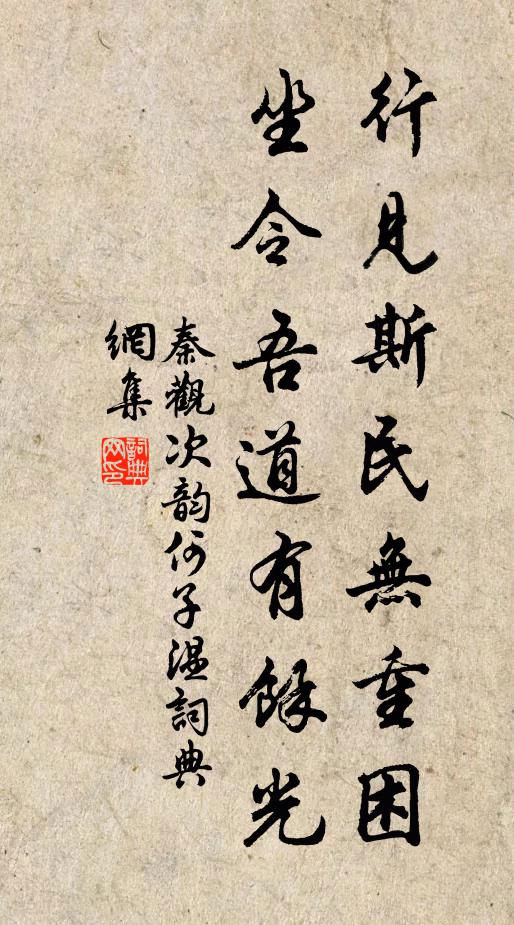 行見斯民無重困
坐令吾道有餘光
秦觀次韵何子溫詞典
網集
詞典
网印